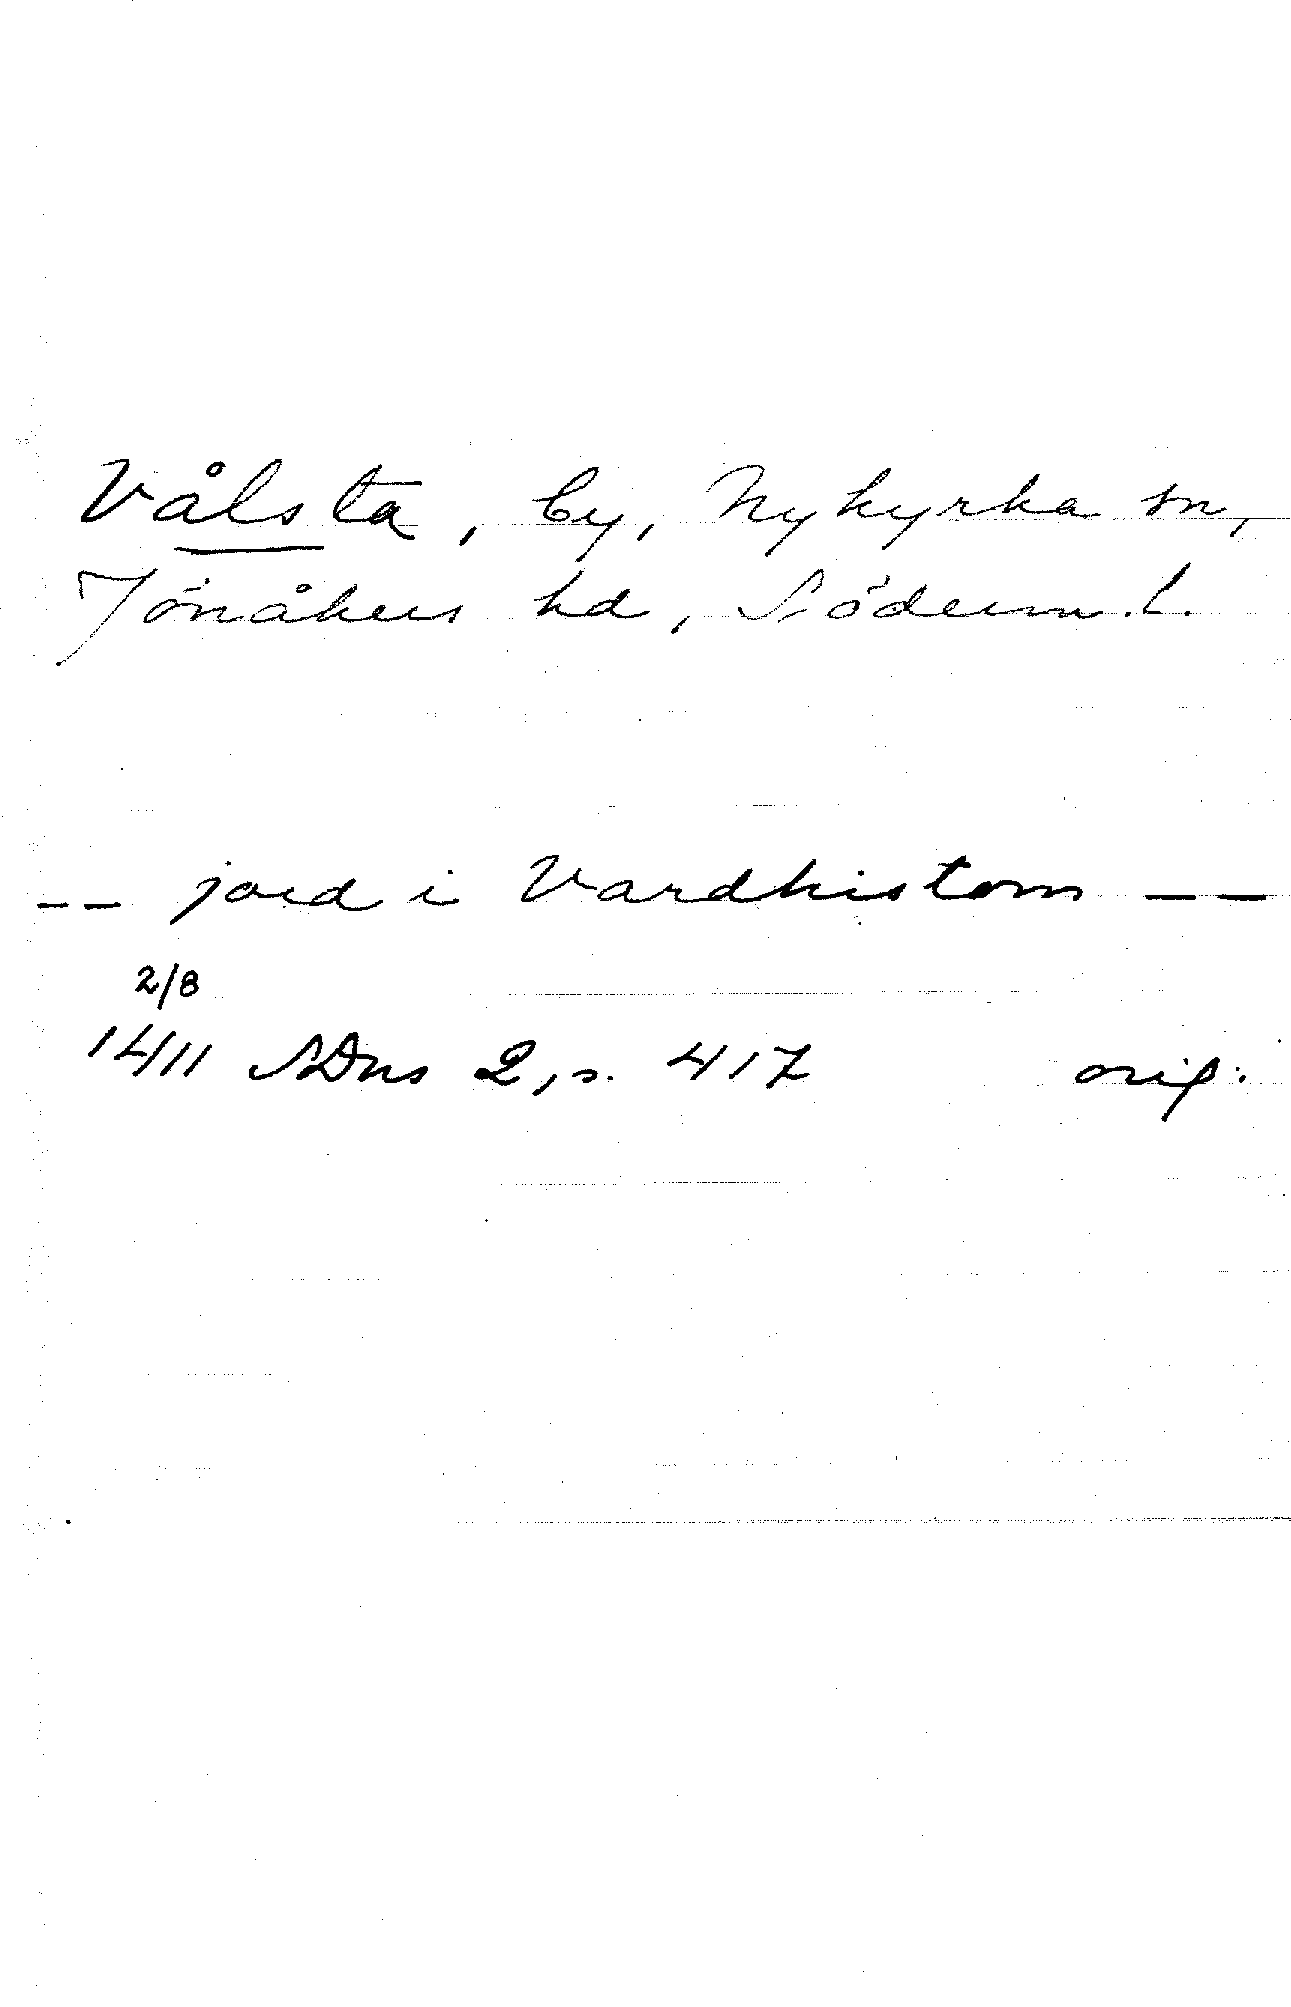 Vålsta, by, Nykyrka sn,
Jönåkers hd, Söderm. l.
-- jord i Vardhistom --
2/8
1411 SDns 2, s. 417 orig.